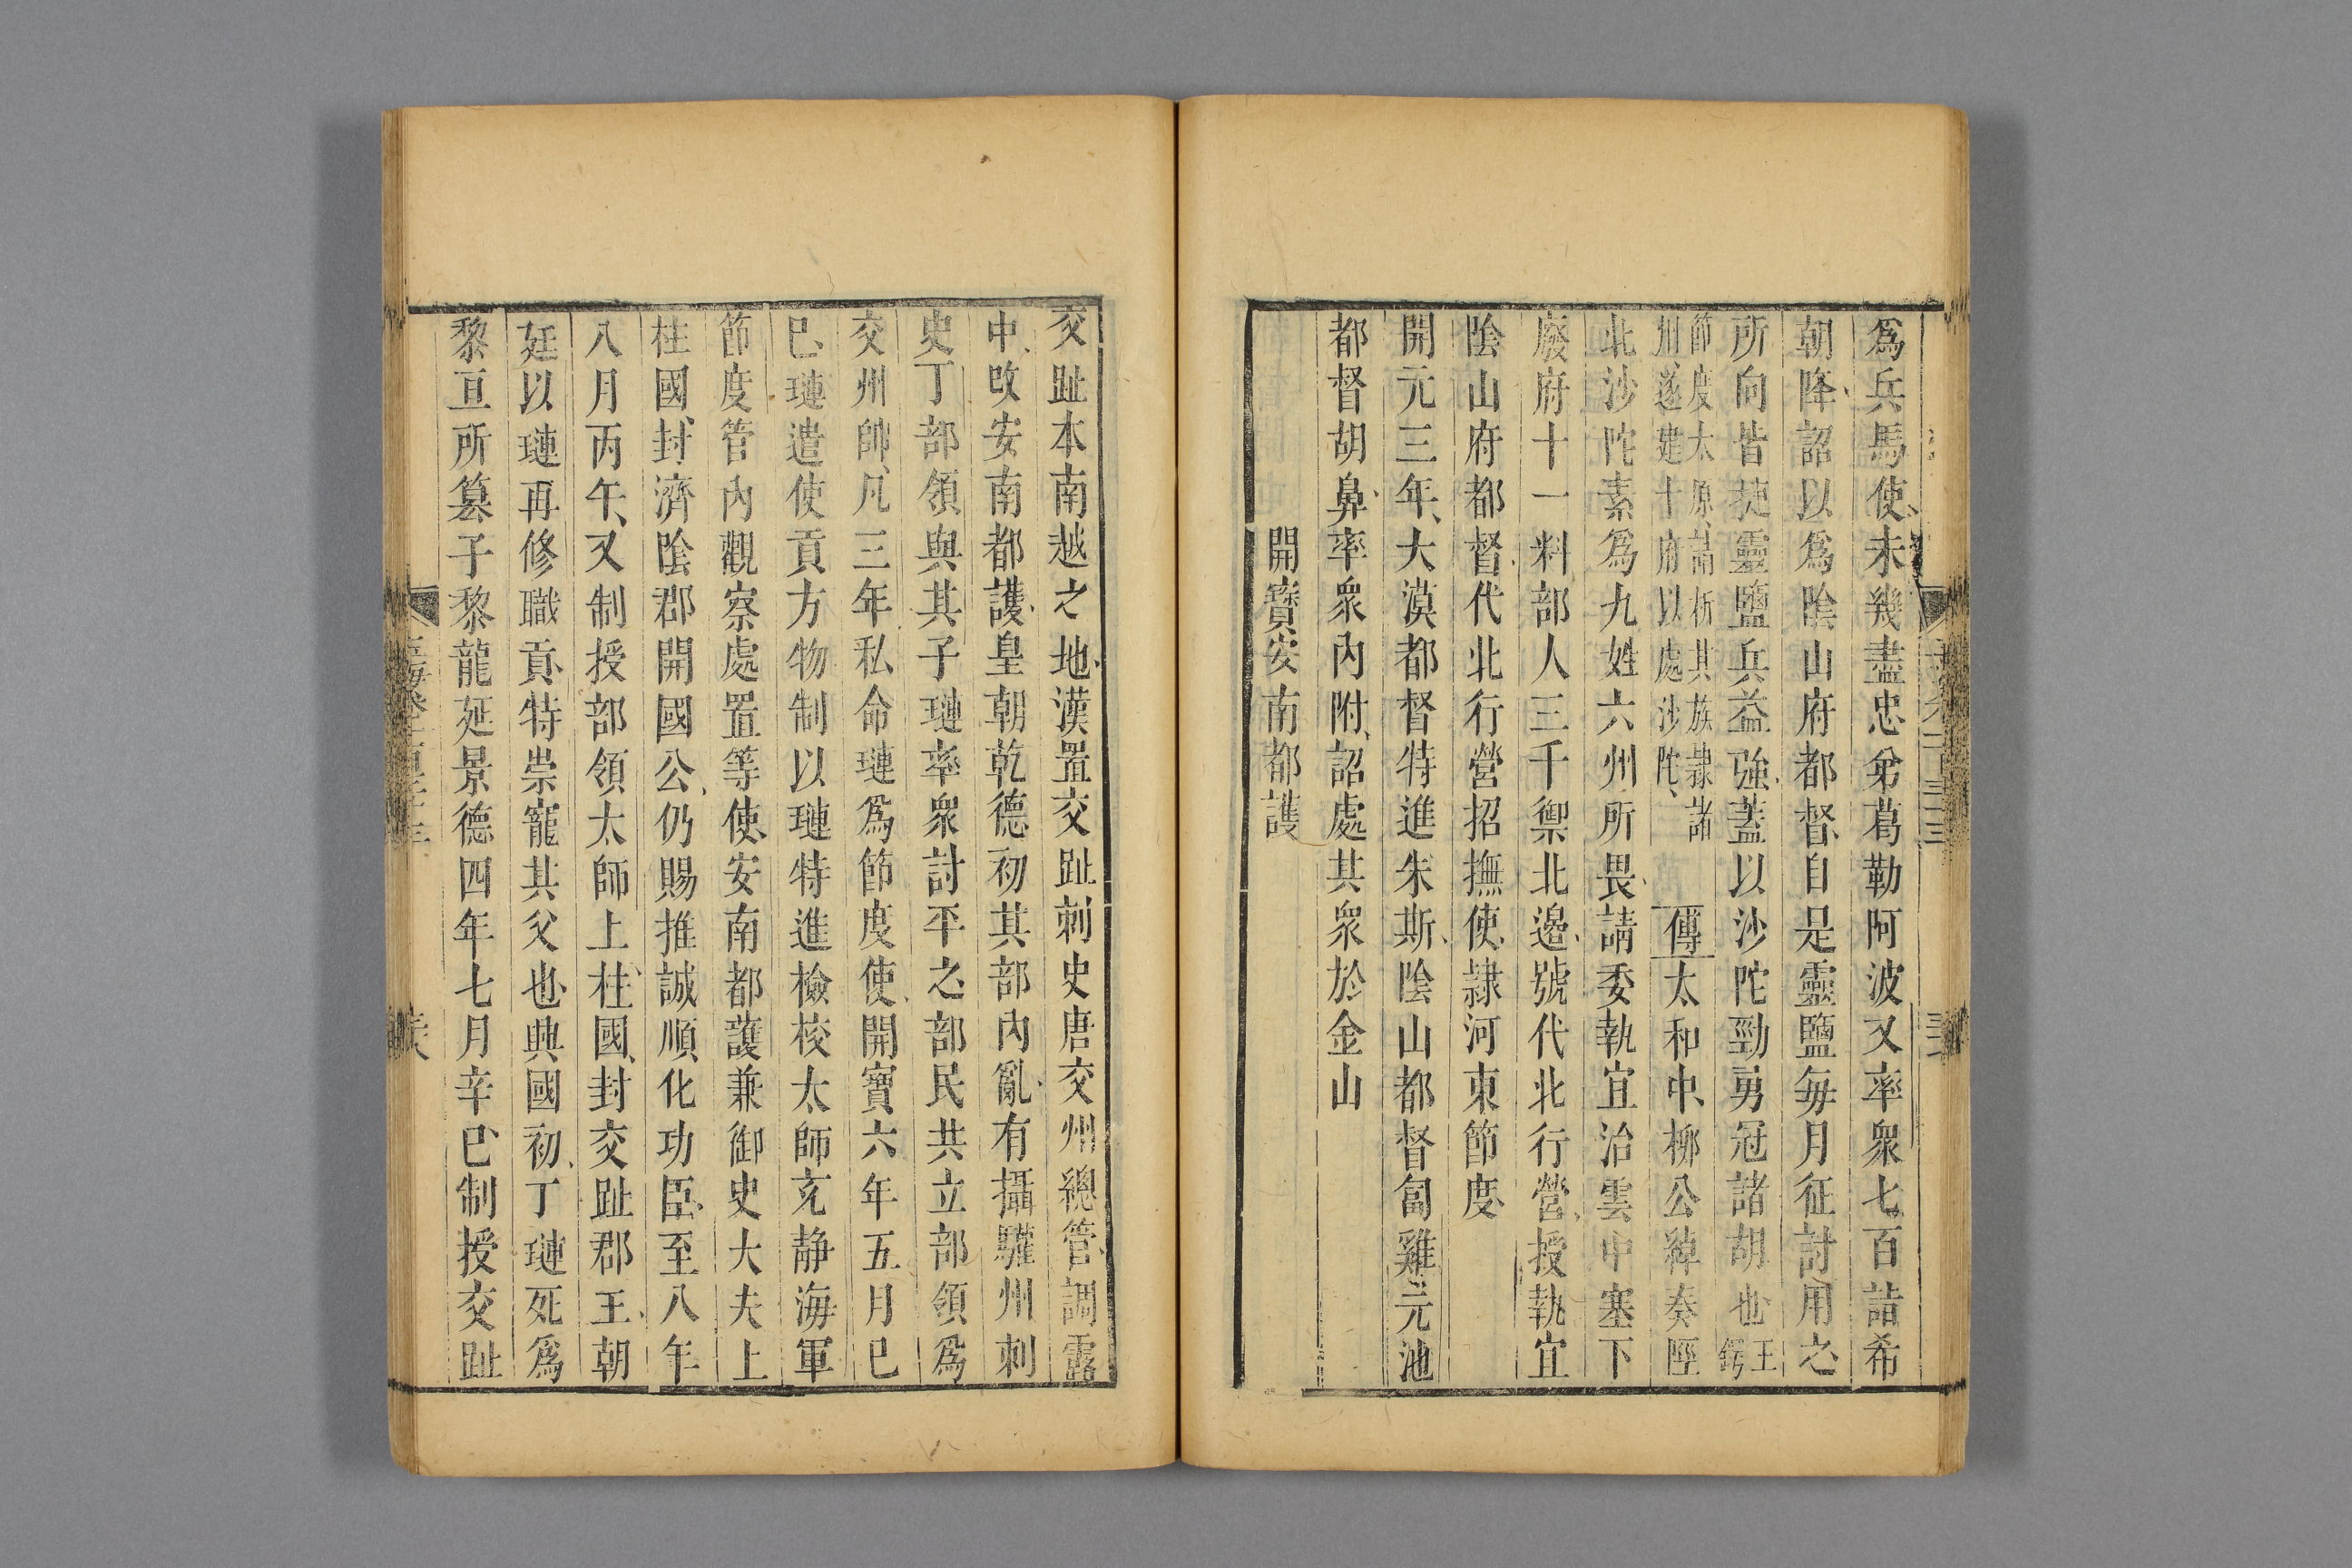 爲兵馬使、未幾盡忠弟葛勒阿波又率衆七百詣希
朝降、詔以爲隂山府都督、自是靈鹽每月征討用之、
所向皆捷靈鹽兵益強、蓋以沙陀勁勇冠諸胡也王鍔
節度太原、請析其族隷諸州、遂建十府以處沙陀、傳太和中、柳公綽奏陘
北沙陀素爲九姓六州所畏、請委執宜治雲中塞下
廢府十一料部人三千禦北邊、號代北行營、授執宜
隂山府都督、代北行營招撫使、隷河東節度、
開元三年、大漠都督特進朱斯、隂山都督匐雞元池
都督胡鼻、率衆內附、詔處其衆於金山
開寶安南都護
交趾本南越之地、漢置交趾刺史唐交州總管、調露
中、改安南都護、皇朝乾德初其部內亂、有攝驩州刺
史丁部領與其子璉率衆討平之、部民共立部領爲
交州帥、凡三年私命璉爲節度使、開寶六年五月已
巳、璉遣使貢方物制以璉特進檢校太師充靜海軍
節度管內觀察處置等使、安南都護兼御史大夫上
柱國、封濟隂郡開國公、仍賜推誠順化功臣、至八年
八月丙午、又制授部領太師上柱國、封交趾郡王、朝
廷以璉再修職貢、特崇寵其父也、興國初、丁璉死爲
黎亘所簒子黎龍延景德四年七月辛巳、制授交趾